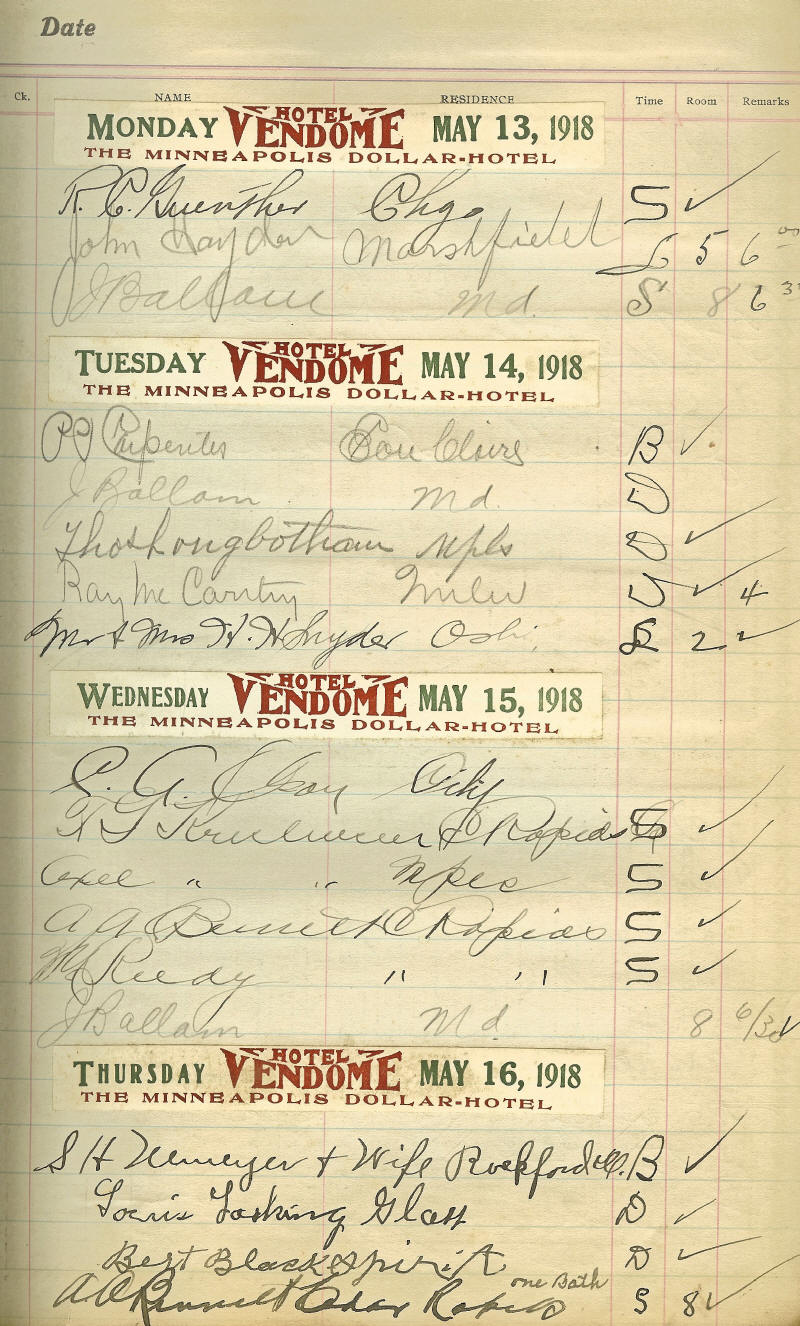 Date
Ck. NAME RESIDENCE Time Room Remarks
MONDAY HOTEL VENDOME MAY 13, 1918
THE MINNEAPOLIS DOLLAR-HOTEL
R. C. Guenther Chgo S ✓
John Marshfield 5 6 00
J Ballam Md. S 8 6 3
TUESDAY HOTEL VENDOME MAY 14, 1918
THE MINNEAPOLIS DOLLAR-HOTEL
Carpenter Eau Claire B ✓
J Ballam Md. D
Thos Longbotham Mpls D ✓
Ray Mc Carthy Milw ✓ 4
Mr & Mrs H. H Snyder Osh 2 ✓
WEDNESDAY HOTEL VENDOME MAY 15, 1918
THE MINNEAPOLIS DOLLAR-HOTEL
C. A. Olson City
C Rapids S ✓
Axel " " Mpls S ✓
A A Bennett C Rapids S ✓
Reedy " " S ✓
J Ballam Md 8 6/30 ✓
THURSDAY HOTEL VENDOME MAY 16, 1918
THE MINNEAPOLIS DOLLAR-HOTEL
S H Nemeyer & Wife Rockford Ill. B ✓
Louis Looking Glass D ✓
Bert Blackspirit D ✓
one Bath
A A Bennett Cedar Rapids S 8 ✓